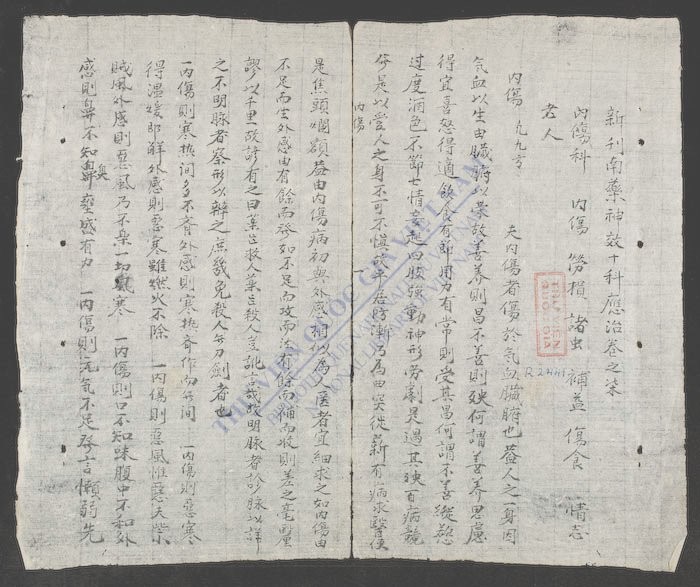 新刊南藥神效十科應治卷之柒
內傷科 內傷 勞損 諸虫 補益 傷食 情志
老人
內傷 九九方 夫內傷者傷於气血臟腑也蓋人之一身因
气血以生由臟腑以榮故善养則昌不善則殃何謂善养思慮
得宜喜怒得適飲食有節用力有常則受其昌何謂不善縱慾
过度酒色不節七情妄起四肢強動神形勞劇是過其殃百病競
侵是以愛人之身不可不慎 防漸乃為曲突従薪有病求醫便
內傷
是焦頭爛額蓋由內傷病初與外感相似為人医者宜細求之如內傷由
不足而生外感由有餘而發如不足而攻而泻有餘而補而收則差之毫厘
謬以千里故諺有之曰藥二救人藥二殺人豈訛言哉故明脉者診脉以詳
之不明脉者察形以辨之庶幾免殺人無刀劍者也
一內傷則寒热间多不齊外感則寒热齊作而無间 一內傷則惡寒
得溫煖即解外感則惡寒雖燃火不除 一內傷則惡風惟惡夫些小
賊風外感則惡風乃不柰一切風寒 一內傷則口不知味腹中不和外
感則鼻不知臭壅盛有力 一內傷則元气不足發言懶弱先
R.2444
THƯ VIỆN
QUỐC GIA
THƯ VIỆN QUỐC GIA VIỆT NAM
BIBLIOTHÈQUE NATIONALE DU VIETNAM
NATIONAL LIBRARY OF VIETNAM